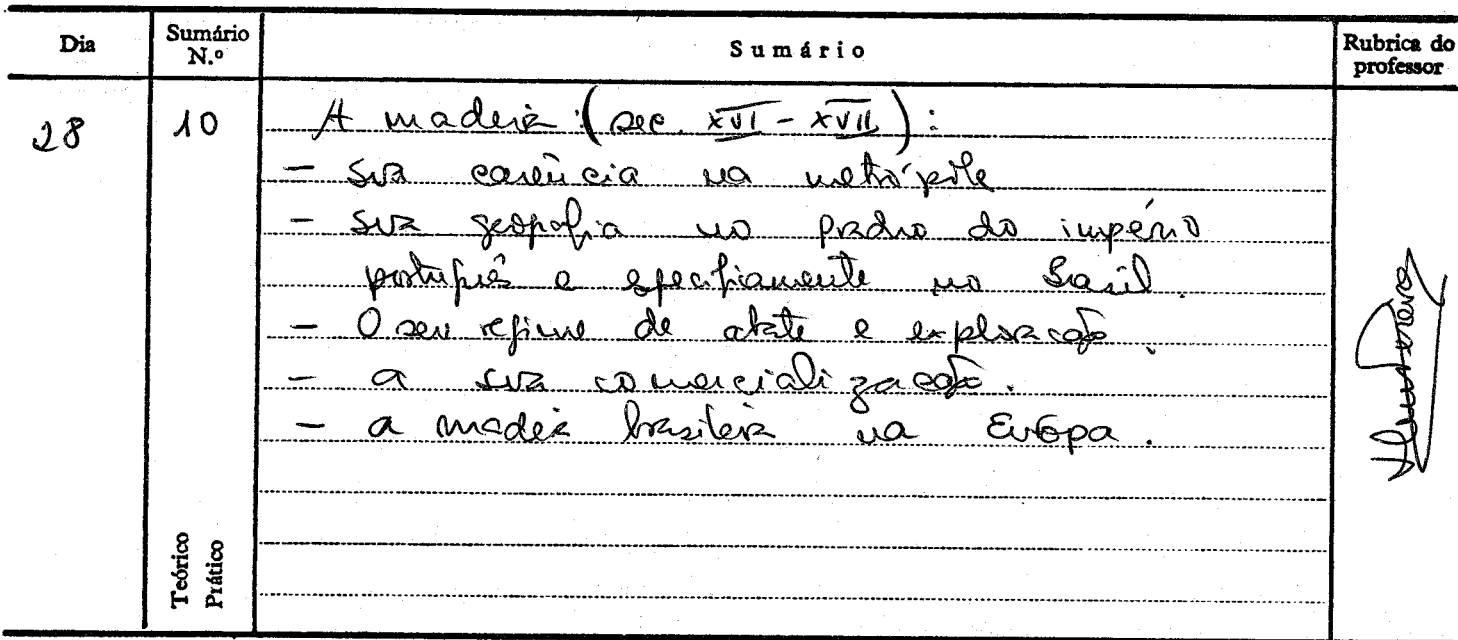 Dia
Sumário N.º
Sumário
Rubrica do professor
28
10
A madeira: (sec. XVI - XVII):
- sua carência na metrópole
- sua geografia no quadro do império
português e especificamente no Brasil.
- O seu regime de abate e exploração.
- a sua comercialização.
- a madeira brasileira na Europa.
Teórico
Prático